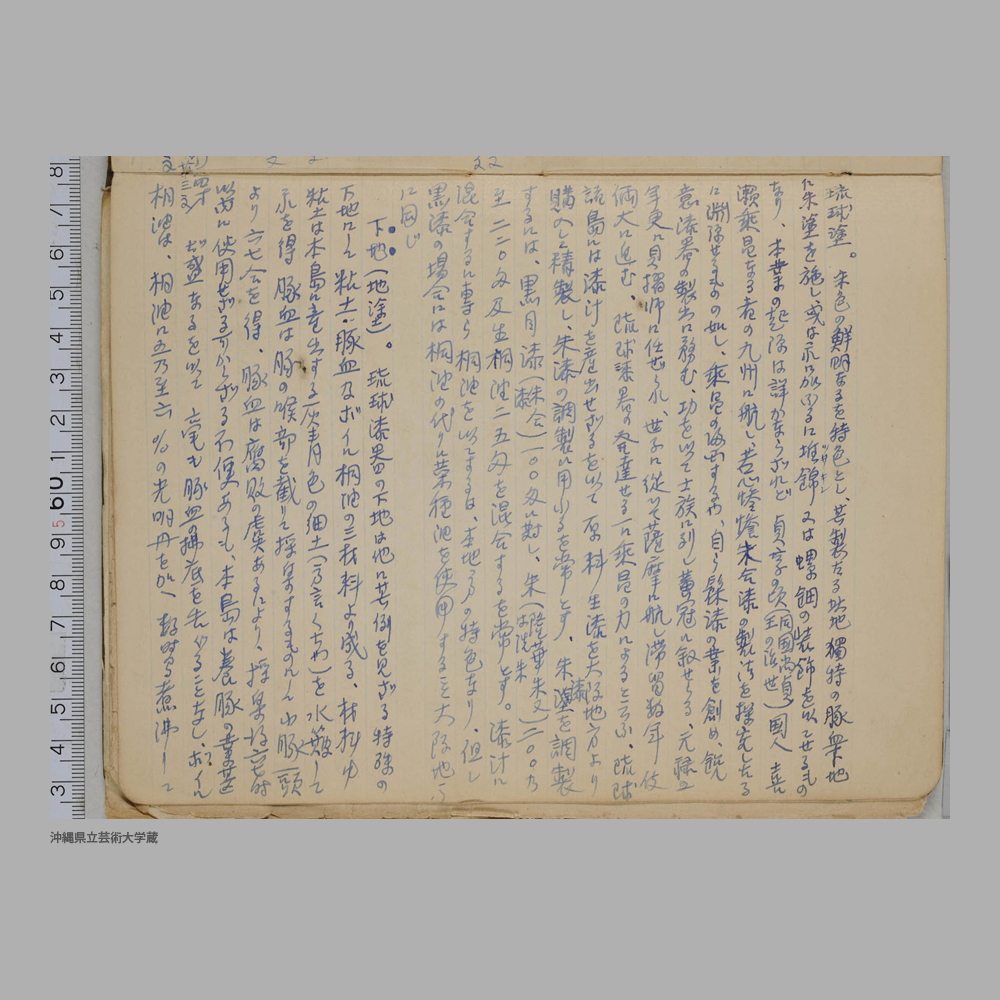 琉球塗。 朱色の鮮明なるを特色とし、其製たる堊地 獨特の豚血下地
に朱塗を施し或は之に加ふるに堆錦 又は螺鈿の装飾を以てせるもの
なり、本業の起源は詳かならざれど 貞享の頃(同国尚貞王の治世)国人 喜
瀬乗昌なる者の九州に航し、苦心惨憺朱合漆の製法を探究したる
に淵源せるものの如し、乗昌の帰国するや、自ら髹漆の業を創め、鋭
意漆器の製出に務む、功を以て士族に列し 黄冠に叙せらる、元禄二
年更に貝摺師に任ぜられ、世子に従ひて薩摩に航し滞留数年 伎
倆大に進む、琉球漆器の発達せる一に乗昌の力によると云ふ、琉球
諸島には漆汁を産出せざるを以て 原料 生漆を大阪地方より
購入し精製し、朱漆の調製に用ふるを常とす、朱漆を調製
するには、黒目漆(朱合漆)一〇〇匁に対し、朱
至 二二〇匁及生桐油二五匁を混合するを常とす。漆汁に
混合するに専ら 桐油を以てするは、本地方の特色なり、但し
黒漆の場合には桐油の代りに菜種油を使用すること大阪地方
に同じ
下地(地塗)。 琉球漆器の下地は他に其例を見ざる特殊の
下地にして粘土・豚血及ボイル桐油の三材料より成る、
粘土は本島に産出する灰青色の細土(方言くちゃ)を水簸して
之を得 豚血は豚の喉部を截りて採集するものにして小豚一頭
より六七合を得、豚血は腐敗の虞あるにより、採集後六七時
以内に使用せざるべからざる不便あるも、本島は養豚の業甚
だ盛なるを以て 毫も豚血の 告ぐることなし、ボイル
桐油は、桐油に五乃至六%の光明丹を加へ 数時間煮沸して
沖縄県立芸術大学蔵